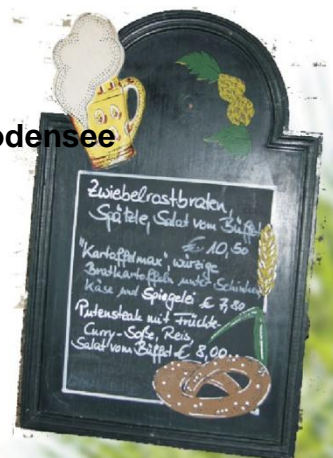 odensee
Zwiebelrostbraten,
Spätzle, Salat vom Büffet
€ 10,50
"Kartoffelmax", würzige
Bratkartoffeln unter Schinken
Käse und Spiegelei € 7,80
Putensteak mit Früchte-
Curry-Soße, Reis,
Salat vom Büffet € 8,00